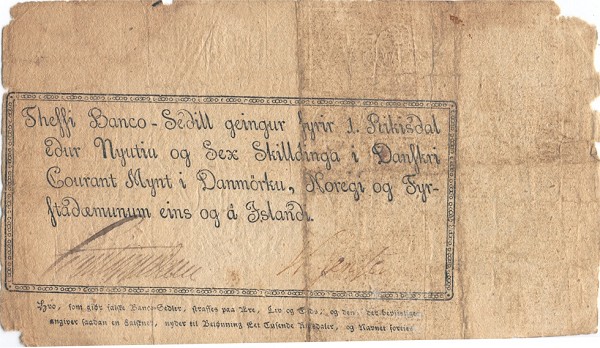 Theffi Banco-Sedill geingur fyrir 1. Rikisdal
edur Nyutiu og Sex Skilldinga i Danfkri
Courant Mynt i Danmörku, Noregi og Fyr-
ftadæmunum eins og â Islandi.
Hvo, som giör falske Banco-Sedler, straffes paa Ære, Liv og Gods, og den, der beviislig
angiver saadan en Falskner, nyder til Belønning Eet Tusende Rigsdaler, og Navnet forties.